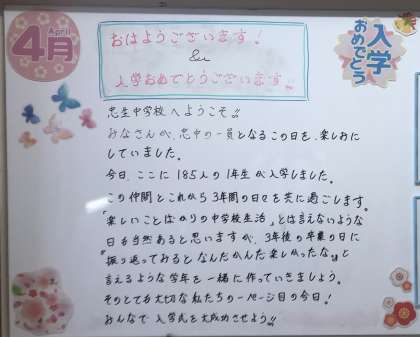 4月
April
おはようございます！
&
入学おめでとうございます!!
入学
おめでとう
忠生中学校へようこそ!!
みなさんが、忠中の一員となるこの日を、楽しみに
していました。
今日、ここに185人の1年生が入学しました。
この仲間とこれから3年間の日々を共に過ごします。
「楽しいことばかりの中学校生活」とは言えないような
日も当然あると思いますが、3年後の卒業の日に
『振り返ってみるとなんだかんだ楽しかったな』と
言えるような学年を一緒に作っていきましょう。
そのとても大切な私たちの一ページ目の今日！
みんなで入学式を大成功させよう!!